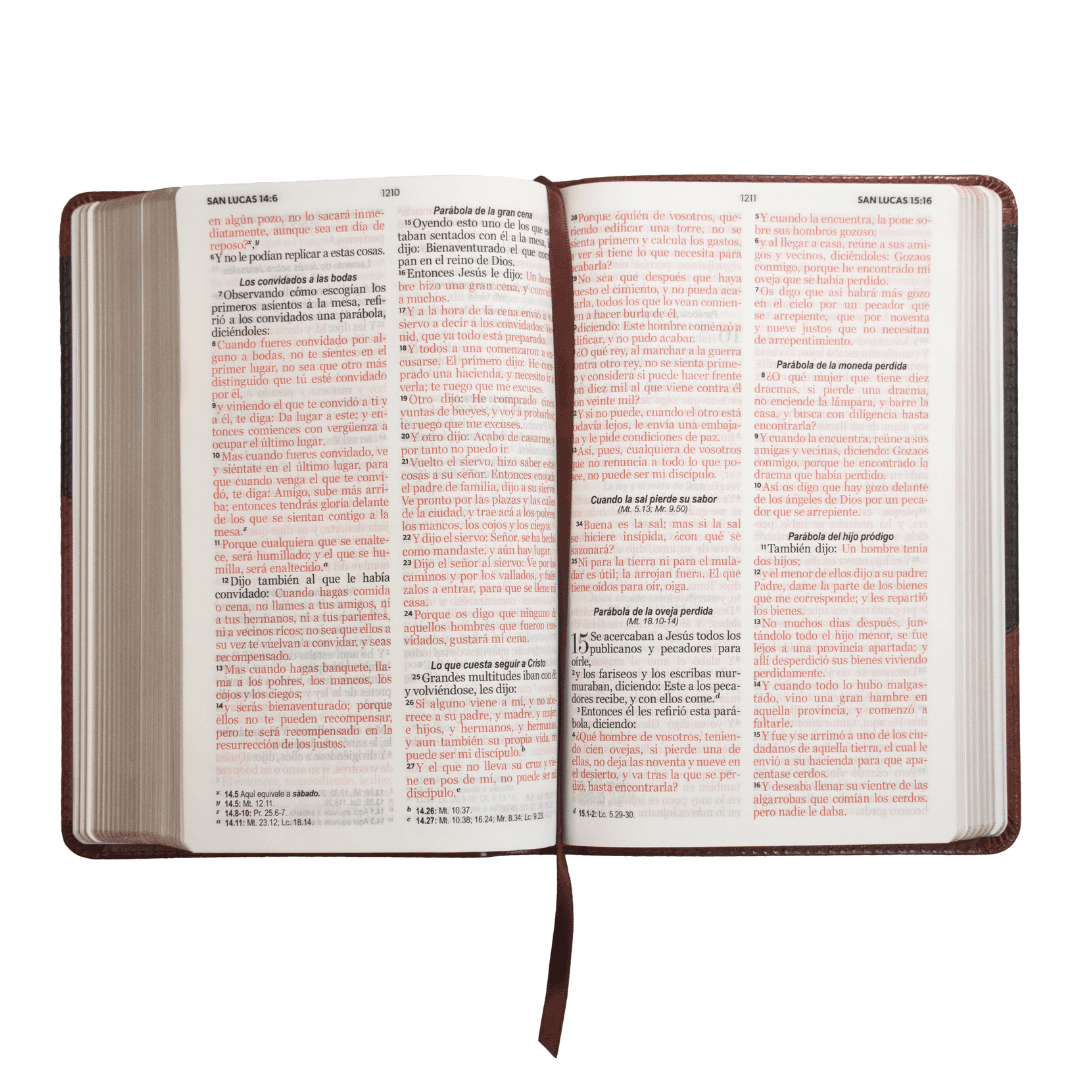 SAN LUCAS 14:6
1210
en algún pozo, no lo sacará inme-
diatamente, aunque sea en día de
reposo?x,y
6Y no le podían replicar a estas cosas.
Los convidados a las bodas
7Observando cómo escogían los
primeros asientos a la mesa, refi-
rió a los convidados una parábola,
diciéndoles:
8Cuando fueres convidado por al-
guno a bodas, no te sientes en el
primer lugar, no sea que otro más
distinguido que tú esté convidado
por él,
9y viniendo el que te convidó a ti y
a él, te diga: Da lugar a este; y en-
tonces comiences con vergüenza a
ocupar el último lugar.
10Mas cuando fueres convidado, ve
y siéntate en el último lugar, para
que cuando venga el que te convi-
dó, te diga: Amigo, sube más arri-
ba; entonces tendrás gloria delante
de los que se sientan contigo a la
mesa.z
11Porque cualquiera que se enalte-
ce, será humillado; y el que se hu-
milla, será enaltecido.a
12Dijo también al que le había
convidado: Cuando hagas comida
o cena, no llames a tus amigos, ni
a tus hermanos, ni a tus parientes,
ni a vecinos ricos; no sea que ellos a
su vez te vuelvan a convidar, y seas
recompensado.
13Mas cuando hagas banquete, lla-
ma a los pobres, los mancos, los
cojos y los ciegos;
14y serás bienaventurado; porque
ellos no te pueden recompensar,
pero te será recompensado en la
resurrección de los justos.
x 14.5 Aquí equivale a sábado.
y 14.5: Mt. 12.11.
z 14.8-10: Pr. 25.6-7.
a 14.11: Mt. 23.12; Lc. 18.14.
Parábola de la gran cena
15Oyendo esto uno de los que es
taban sentados con él a la mesa, l
dijo: Bienaventurado el que com
pan en el reino de Dios.
16Entonces Jesús le dijo: Un hom
bre hizo una gran cena, y convid
a muchos.
17Y a la hora de la cena envió a
siervo a decir a los convidados: Ve
nid, que ya todo está preparado.
18Y todos a una comenzaron a ex
cusarse. El primero dijo: He com
prado una hacienda, y necesito ir a
verla; te ruego que me excuses.
19Otro dijo: He comprado cinc
yuntas de bueyes, y voy a probarlos
te ruego que me excuses.
20Y otro dijo: Acabo de casarme,
por tanto no puedo ir.
21Vuelto el siervo, hizo saber estas
cosas a su señor. Entonces enojado
el padre de familia, dijo a su siervo
Ve pronto por las plazas y las calles
de la ciudad, y trae acá a los pobres
los mancos, los cojos y los ciegos.
22Y dijo el siervo: Señor, se ha hech
como mandaste, y aún hay lugar.
23Dijo el señor al siervo: Ve por los
caminos y por los vallados, y fuér
zalos a entrar, para que se llene m
casa.
24Porque os digo que ninguno de
aquellos hombres que fueron con
vidados, gustará mi cena.
Lo que cuesta seguir a Cristo
25Grandes multitudes iban con él
y volviéndose, les dijo:
26Si alguno viene a mí, y no abo
rrece a su padre, y madre, y mujer
e hijos, y hermanos, y hermanas,
y aun también su propia vida, no
puede ser mi discípulo.b
27Y el que no lleva su cruz y vie
ne en pos de mí, no puede ser mi
discípulo.c
b 14.26: Mt. 10.37.
c 14.27: Mt. 10.38; 16.24; Mr. 8.34; Lc. 9.23.
1211
SAN LUCAS 15:16
28Porque ¿quién de vosotros, que-
riendo edificar una torre, no se
sienta primero y calcula los gastos,
a ver si tiene lo que necesita para
acabarla?
29No sea que después que haya
puesto el cimiento, y no pueda aca-
barla, todos los que lo vean comien-
en a hacer burla de él,
diciendo: Este hombre comenzó a
dificar, y no pudo acabar.
¿O qué rey, al marchar a la guerra
contra otro rey, no se sienta prime-
o y considera si puede hacer frente
on diez mil al que viene contra él
on veinte mil?
Y si no puede, cuando el otro está
todavía lejos, le envía una embaja-
a y le pide condiciones de paz.
33Así, pues, cualquiera de vosotros
que no renuncia a todo lo que po-
see, no puede ser mi discípulo.
Cuando la sal pierde su sabor
(Mt. 5.13; Mr. 9.50)
34Buena es la sal; mas si la sal
se hiciere insípida, ¿con qué se
sazonará?
35Ni para la tierra ni para el mula-
dar es útil; la arrojan fuera. El que
tiene oídos para oír, oiga.
Parábola de la oveja perdida
(Mt. 18.10-14)
15Se acercaban a Jesús todos los
publicanos y pecadores para
oírle,
2y los fariseos y los escribas mur-
muraban, diciendo: Este a los peca-
dores recibe, y con ellos come.d
3Entonces él les refirió esta pará-
bola, diciendo:
4¿Qué hombre de vosotros, tenien-
do cien ovejas, si pierde una de
ellas, no deja las noventa y nueve en
el desierto, y va tras la que se per-
dió, hasta encontrarla?
d 15.1-2: Lc. 5.29-30.
5Y cuando la encuentra, la pone so-
bre sus hombros gozoso;
6y al llegar a casa, reúne a sus ami-
gos y vecinos, diciéndoles: Gozaos
conmigo, porque he encontrado mi
oveja que se había perdido.
7Os digo que así habrá más gozo
en el cielo por un pecador que
se arrepiente, que por noventa
y nueve justos que no necesitan
de arrepentimiento.
Parábola de la moneda perdida
8¿O qué mujer que tiene diez
dracmas, si pierde una dracma,
no enciende la lámpara, y barre la
casa, y busca con diligencia hasta
encontrarla?
9Y cuando la encuentra, reúne a sus
amigas y vecinas, diciendo: Gozaos
conmigo, porque he encontrado la
dracma que había perdido.
10Así os digo que hay gozo delante
de los ángeles de Dios por un peca-
dor que se arrepiente.
Parábola del hijo pródigo
11También dijo: Un hombre tenía
dos hijos;
12y el menor de ellos dijo a su padre:
Padre, dame la parte de los bienes
que me corresponde; y les repartió
los bienes.
13No muchos días después, jun-
tándolo todo el hijo menor, se fue
lejos a una provincia apartada; y
allí desperdició sus bienes viviendo
perdidamente.
14Y cuando todo lo hubo malgas-
tado, vino una gran hambre en
aquella provincia, y comenzó a
faltarle.
15Y fue y se arrimó a uno de los ciu-
dadanos de aquella tierra, el cual le
envió a su hacienda para que apa-
centase cerdos.
16Y deseaba llenar su vientre de las
algarrobas que comían los cerdos,
pero nadie le daba.